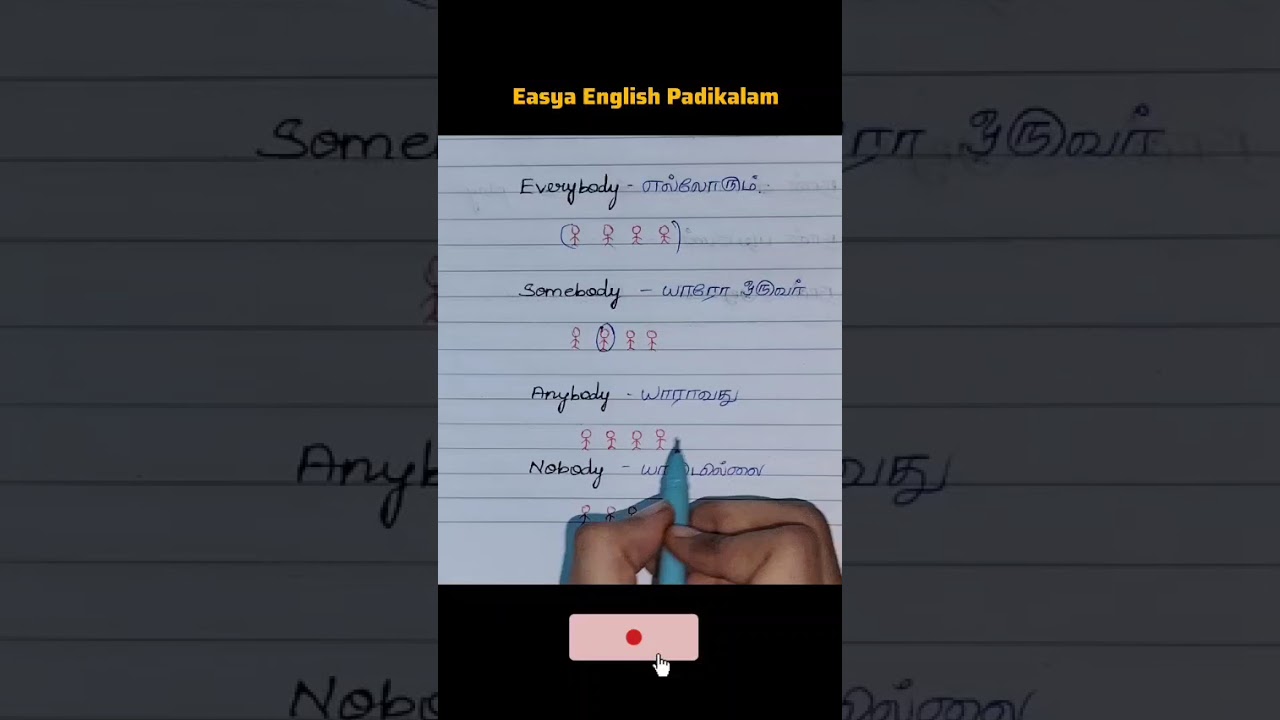 Easya English Padikalam
Everybody - எல்லோரும்.
Somebody - யாரோ ஒருவர்
Anybody - யாராவது
Nobody -